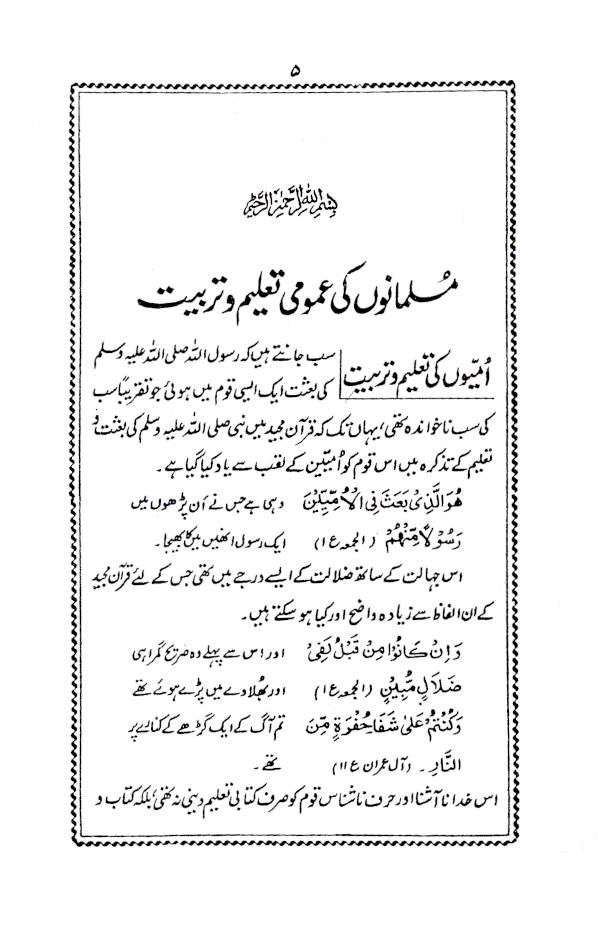 ۵
بسم اللہ الرحمٰن الرحیم
مُسلمانوں کی عمومی تعلیم و تربیت
اُمیّوں کی تعلیم و تربیت
سب جانتے ہیں کہ رسول اللہ صلی اللہ علیہ وسلم
کی بعثت ایک ایسی قوم میں ہوئی جو تقریباً سب
کی سب ناخواندہ تھی، یہاں تک کہ قرآن مجید میں نبی صلی اللہ علیہ وسلم کی بعثت و
تعلیم کے تذکرہ میں اس قوم کو اُمیّین کے لقب سے یاد کیا گیا ہے۔
ھُوَ الَّذِیْ بَعَثَ فِی الْاُمِّیّٖنَ وہی ہے جس نے اَن پڑھوں میں
رَسُوْلًا مِّنْھُمْ (الجمعہ ع ۱) ایک رسول انھیں میں کا بھیجا۔
اس جہالت کے ساتھ ضلالت کے ایسے درجے میں تھی جس کے لئے قرآن مجید
کے ان الفاظ سے زیادہ واضح اور کیا ہو سکتے ہیں۔
وَاِنْ کَانُوْا مِنْ قَبْلُ لَفِیْ اور اس سے پہلے وہ صریح گمراہی
ضَلَالٍ مُّبِیْنٍ (الجمعہ ع ۱) اور بھلاوے میں پڑے ہوئے تھے
وَکُنْتُمْ عَلٰی شَفَا حُفْرَةٍ مِّنَ تم آگ کے ایک گڑھے کے کنارے پر
النَّارِ۔ (آل عمران ع ۱۱) تھے۔
اس خدا ناآشنا اور حرف ناشناس قوم کو صرف کتابی تعلیم دینی نہ تھی، بلکہ کتاب و